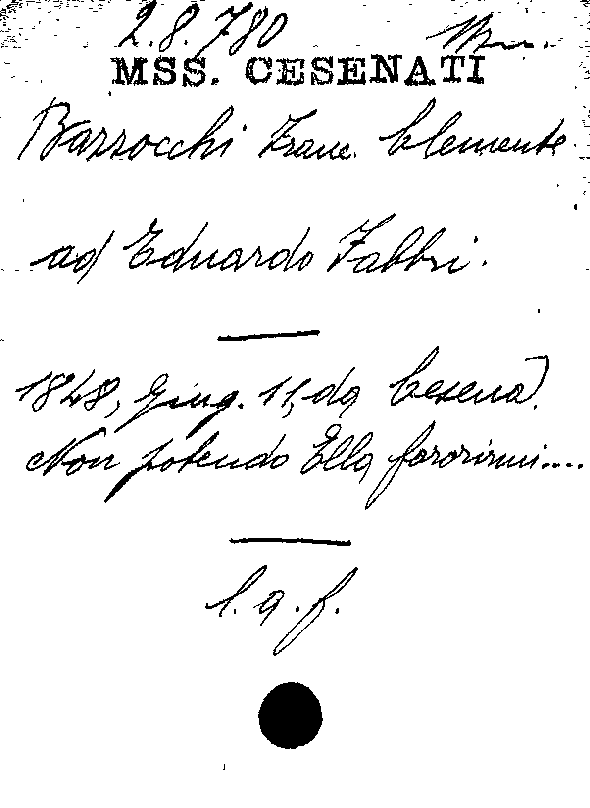 2.8.780
MSS. CESENATI
Bazzocchi Franc. Clemente
ad Eduardo Fabbri.
1848, Giug. 11, da Cesena).
Non potendo Ella favorirmi....
l. a. f.